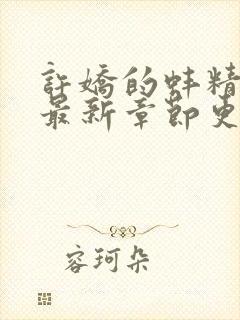 許嬌的蚌精
最新章節更
容珂朵